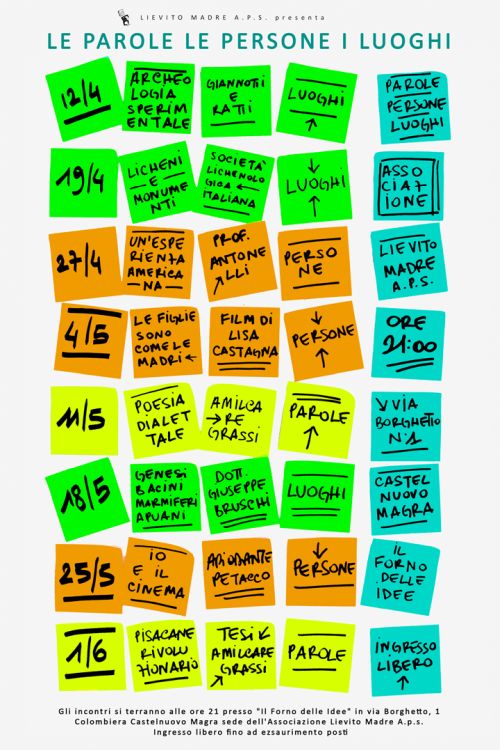 LIEVITO MADRE A.P.S. presenta
LE PAROLE LE PERSONE I LUOGHI
12/4
ARCHEO
LOGIA
SPERIM
ENTALE
GIANNOTTI
E
RATTI
LUOGHI
PAROLE
PERSONE
LUOGHI
19/4
LICHENI
E
MONUME
NTI
SOCIETÀ
LICHENOLO
GICA
ITALIANA
LUOGHI
ASSO
CIAZI
ONE
27/4
UN'ESPE
RIENZA
AMERICA
NA
PROF.
ANTONE
LLI
PERSO
NE
LIEVITO
MADRE
A.P.S.
4/5
LE FIGLIE
SONO
COME LE
MADRI
FILM DI
LISA
CASTAGNA
PERSONE
ORE
21:00
11/5
POESIA
DIALET
TALE
AMILCA
RE
GRASSI
PAROLE
VIA
BORGHETTO
N°1
18/5
GENESI
BACINI
MARMIFERI
APUANI
DOTT.
GIUSEPPE
BRUSCHI
LUOGHI
CASTEL
NUOVO
MAGRA
25/5
IO
E IL
CINEMA
ARIODANTE
PETACCO
PERSONE
IL
FORNO
DELLE
IDEE
1/6
PISACANE
RIVOLU
ZIONARIO
TESI
AMILCARE
GRASSI
PAROLE
INGRESSO
LIBERO
Gli incontri si terranno alle ore 21 presso "Il Forno delle Idee" in via Borghetto, 1
Colombiera Castelnuovo Magra sede dell'Associazione Lievito Madre A.p.s.
Ingresso libero fino ad ezsaurimento posti